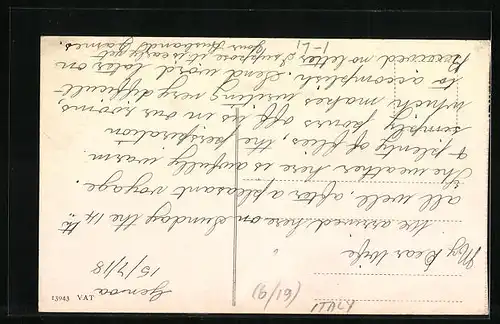 Genoa
15/7/18
My Dear Wife
We arrived here on Sunday the 14th
all well, after a pleasant voyage.
The weather here is awfully warm
& plenty of flies, the perspiration
simply pours off us in our rooms,
which makes writing very difficult
to accomplish. Send word later on
Received no letter I suppose it is early yet
Your Husband James
(61/9)
13943 VAT